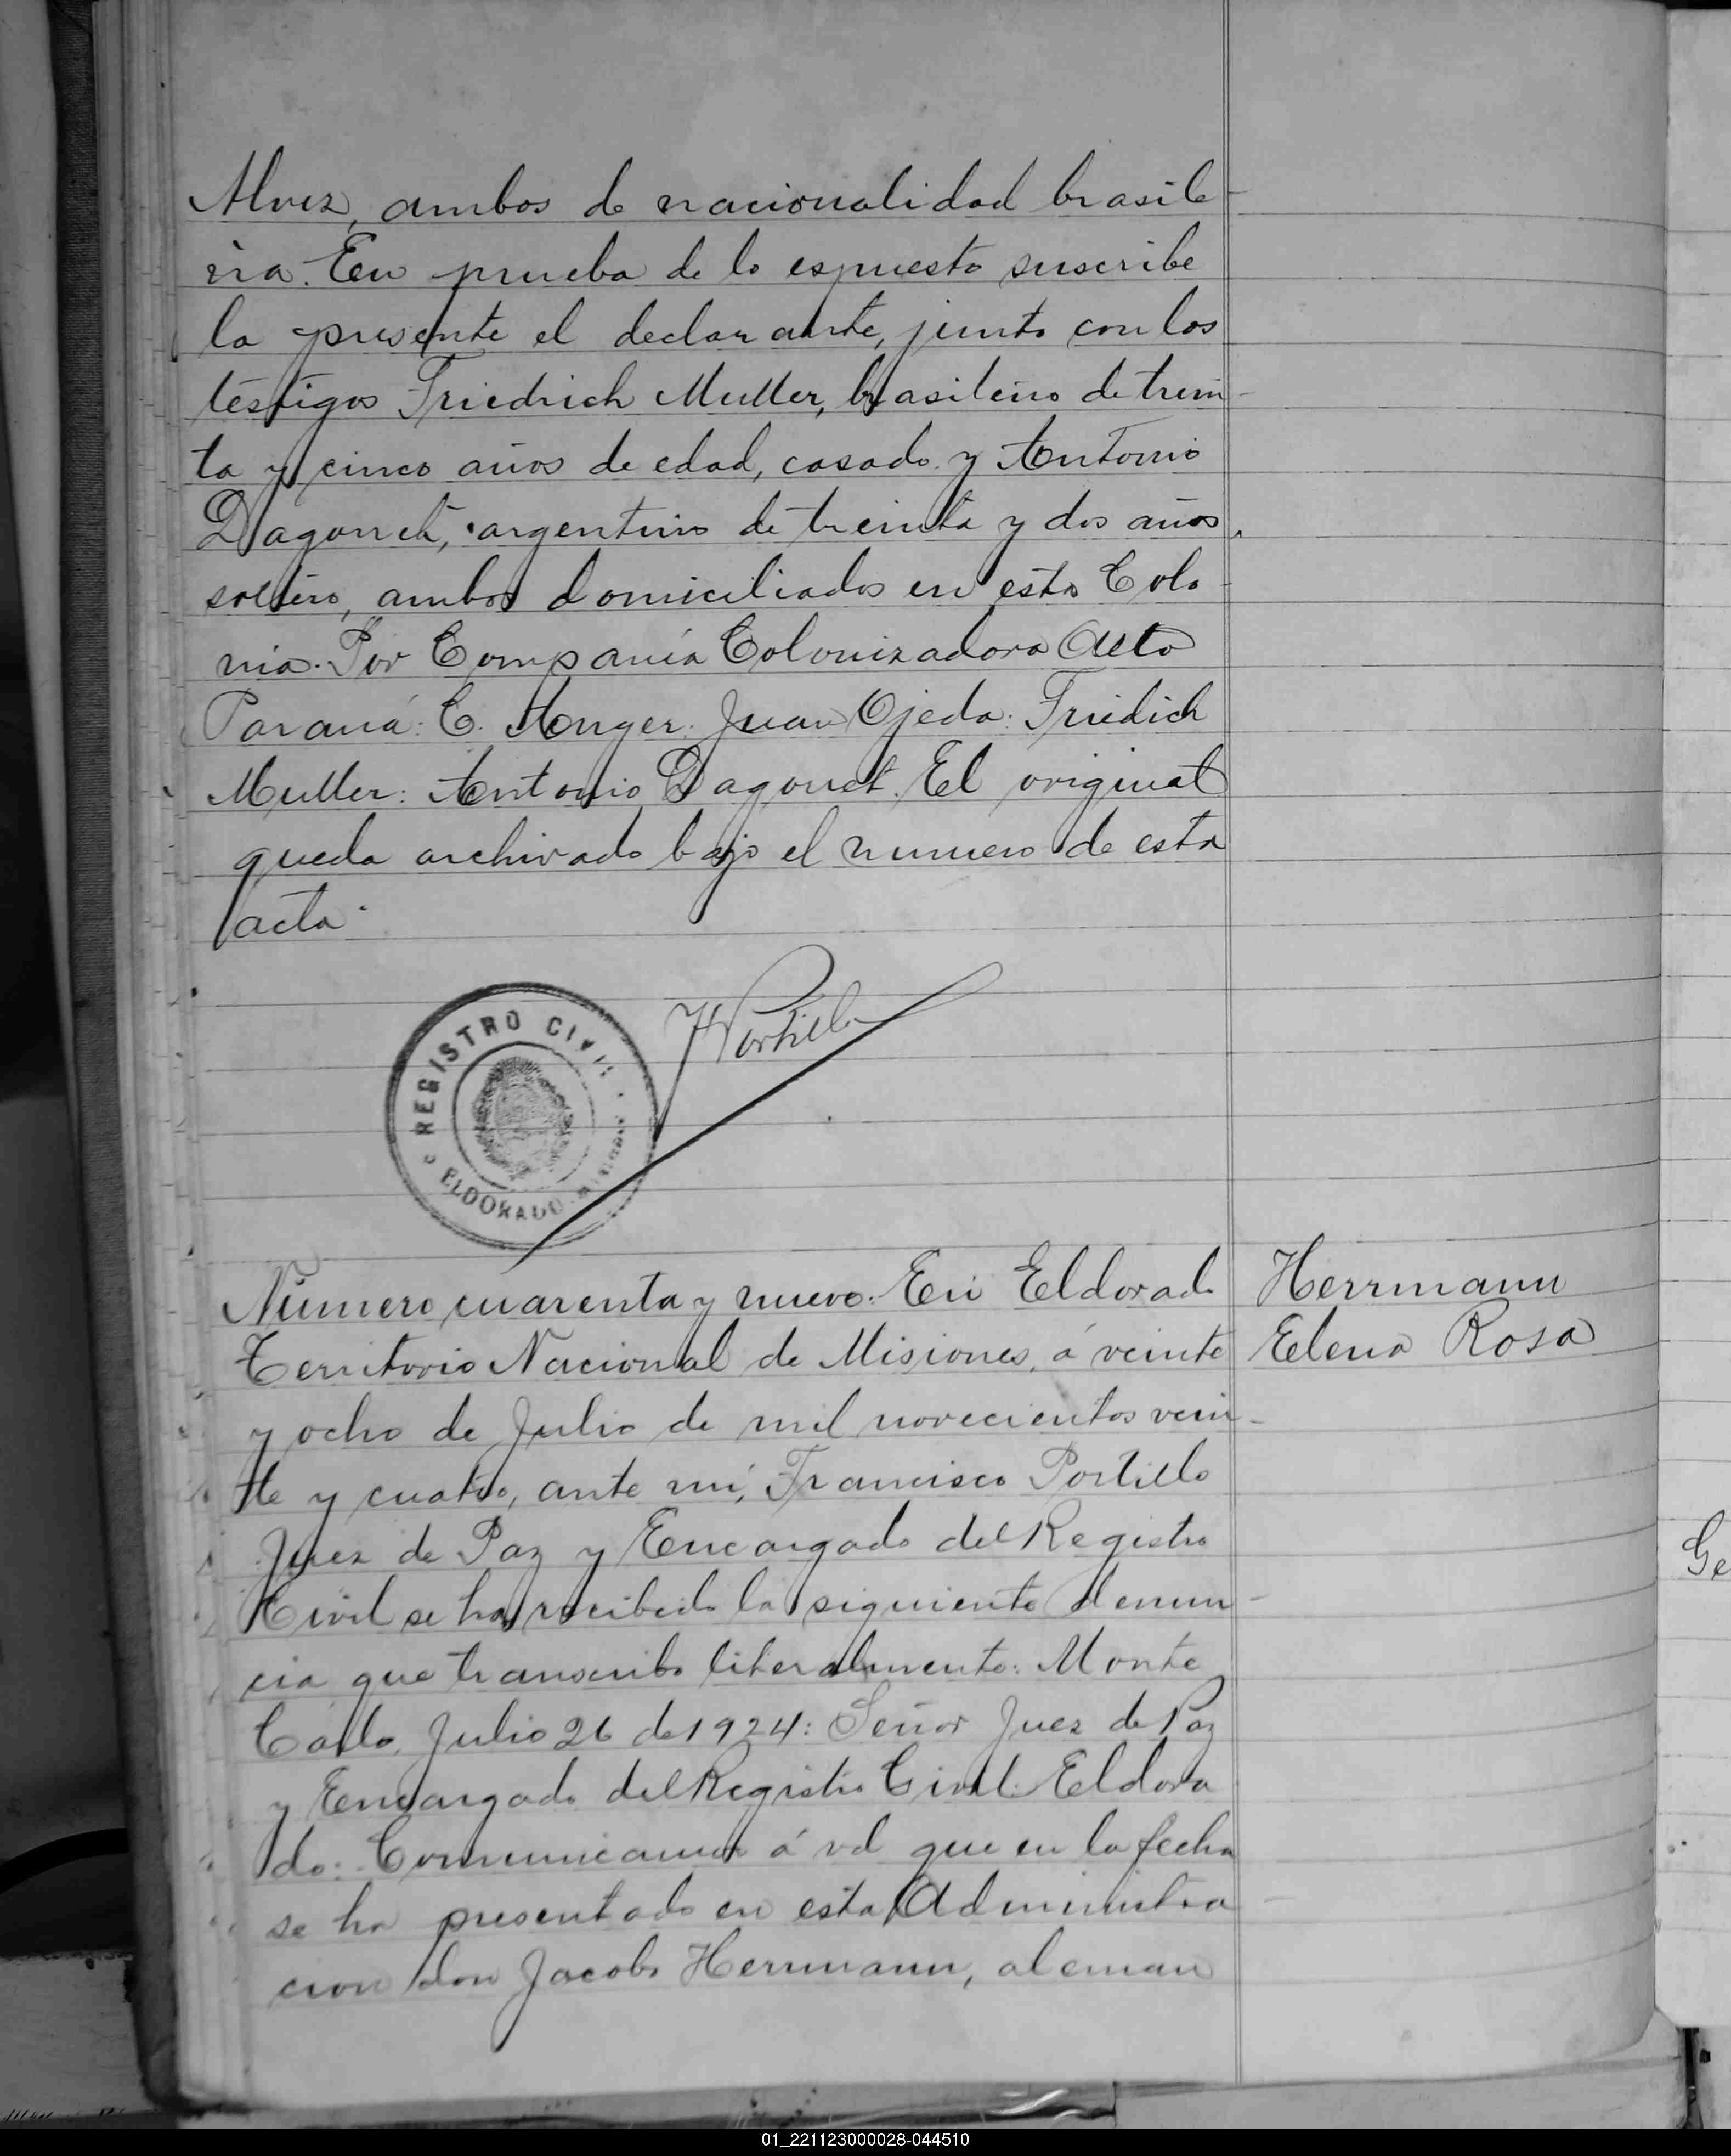 Alvez, ambos de nacionalidad brasile-
ña. En prueba de lo espuesto suscribe
la presente el declarante, junto con los
testigos Friedrich Muller, brasileño de trein-
ta y cinco años de edad, casado y Antonio
Dagonet, argentino de treinta y dos años,
soltero, ambos domiciliados en esta Colo-
nia. Por Compañia Colonizadora Alto
Paraná: C. Anger: Juan Ojeda: Friedich
Muller: Antonio Dagonet. El original
queda archivado bajo el numero de esta
acta.
REGISTRO CIVIL
ELDORADO
FPortillo
Número cuarenta y nueve: En Eldorado
Territorio Nacional de Misiones, á veinte
y ocho de Julio de mil novecientos vein-
te y cuatro, ante mi, Francisco Portillo
Juez de Paz y Encargado del Registro
Civil se ha recibido la siguiente denun-
cia que transcribo literalmente: Monte
Carlo, Julio 26 de 1924: Señor Juez de Paz
y Encargado del Registro Civil. Eldora
do: Comunicamos á vd que en la fecha
se ha presentado en esta Administra-
cion don Jacobo Herrmann, aleman
Herrmann
Elena Rosa
Ge
01_221123000028-044510